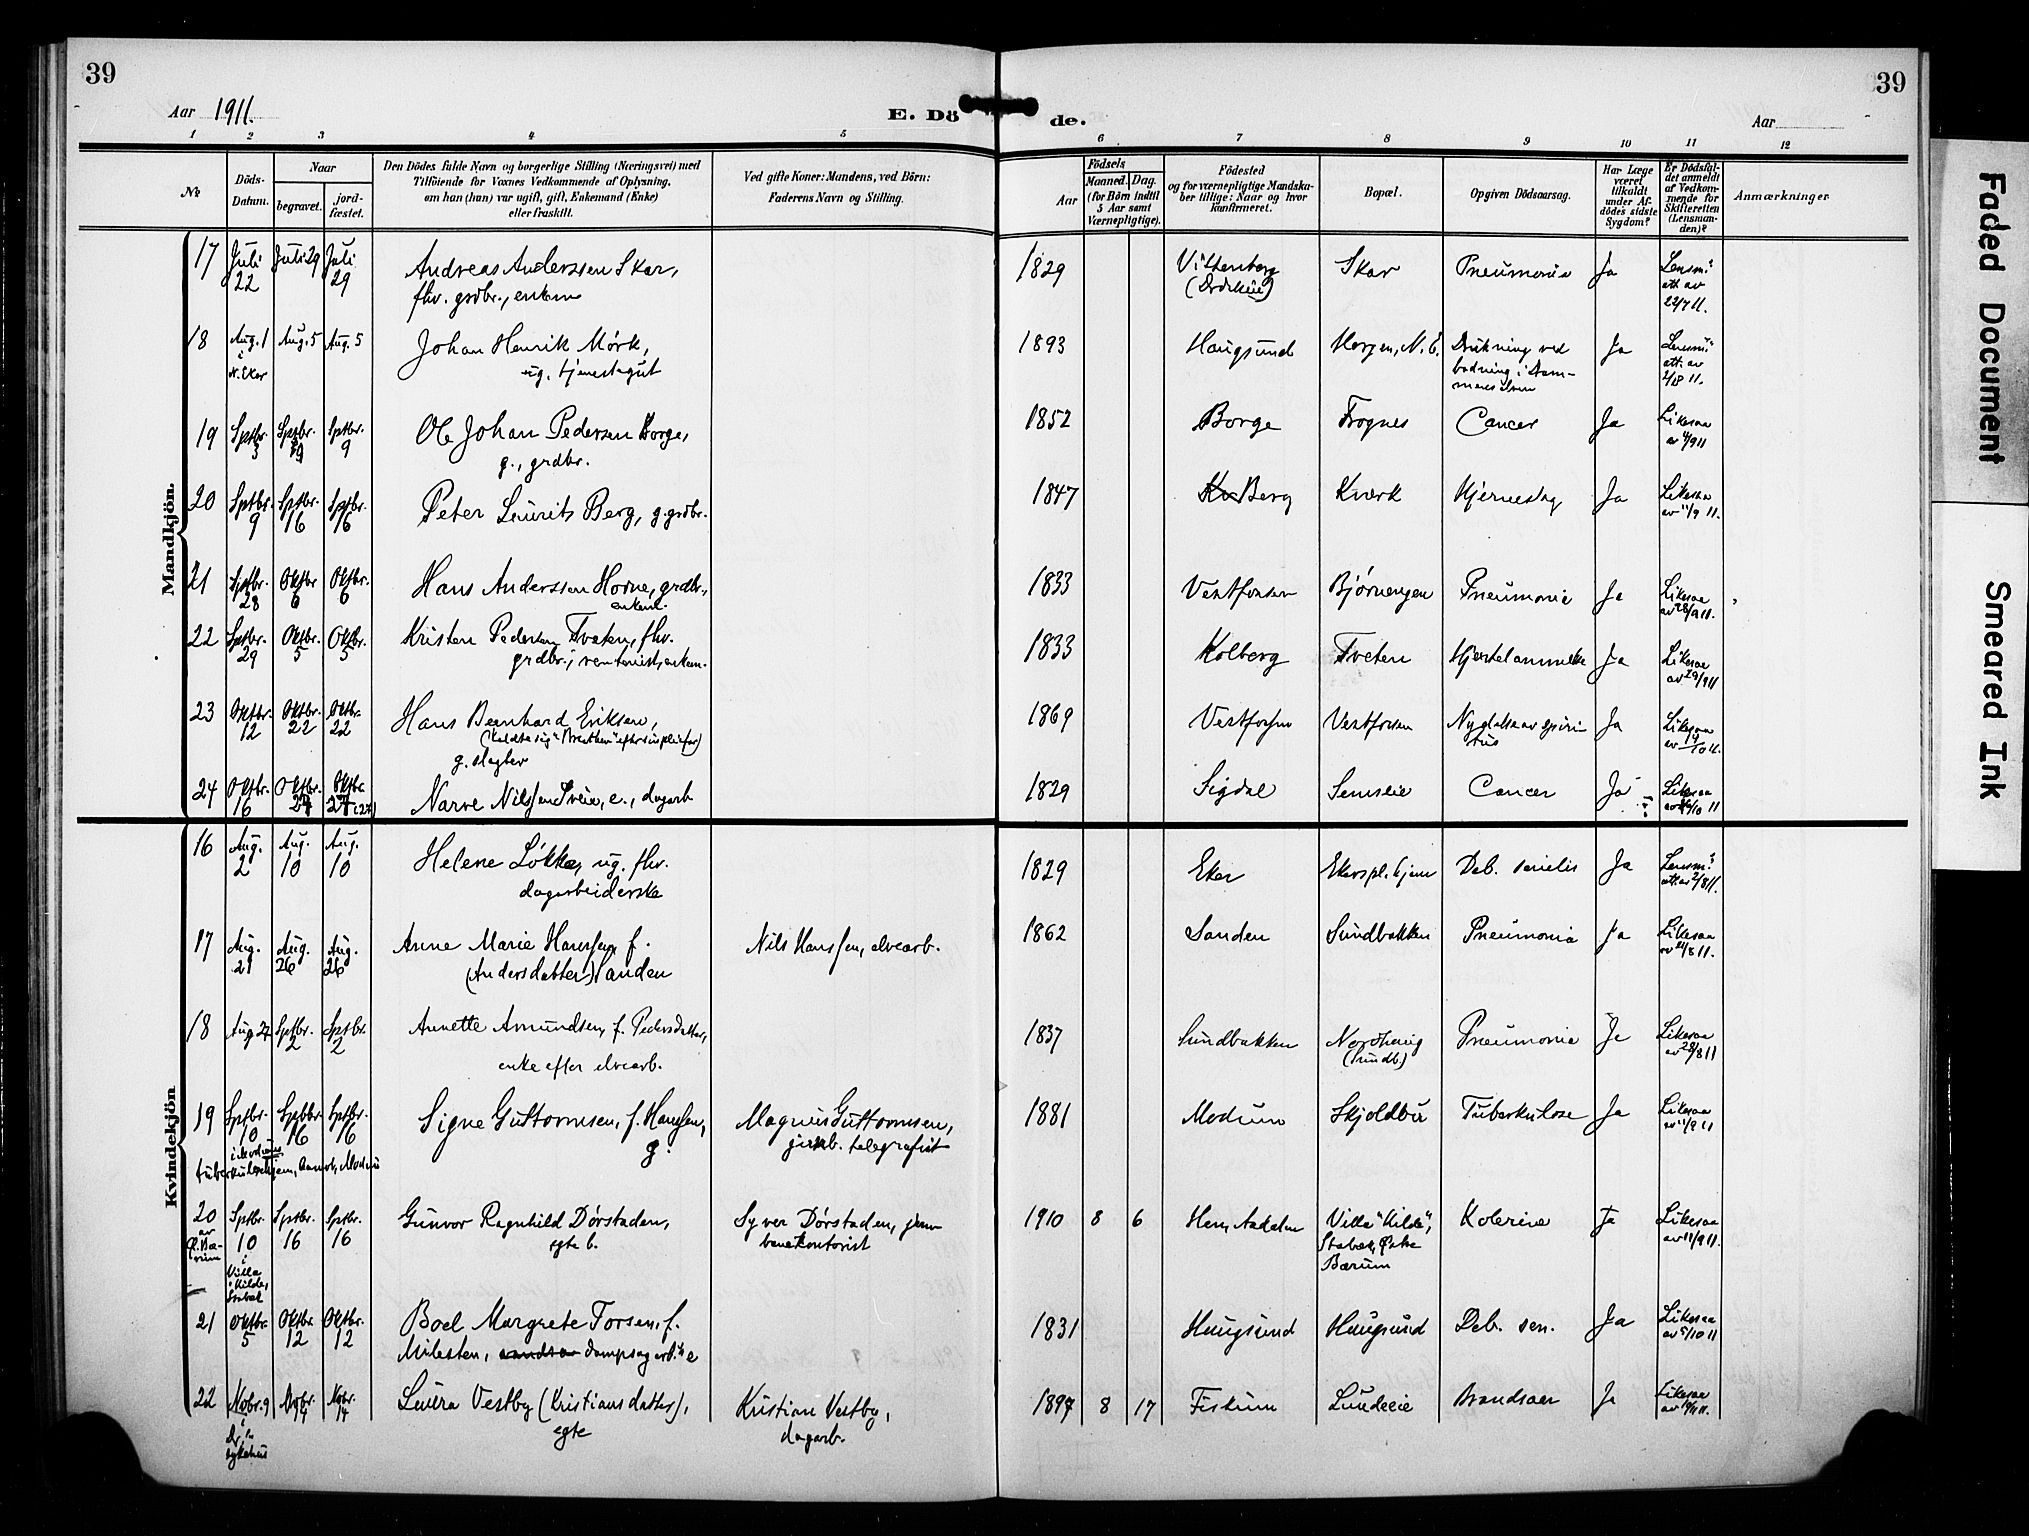 39
39
Aar 1911.
E. Dö
de.
Aar
1 2 3 4 5 6 7 8 9 10 11 12
№
Döds-
Datum.
Naar
begravet.
jord-
fæstet.
Den Dödes fulde Navn og borgerlige Stilling (Næringsvei) med
Tilföiende for Voxnes Vedkommende af Oplysning,
om han (hun) var ugift, gift, Enkemand (Enke)
eller fraskilt.
Ved gifte Koner: Mandens, ved Börn:
Faderens Navn og Stilling.
Födsels
Aar
Maaned. Dag.
(for Börn indtil
5 Aar samt
Værnepligtige).
Födested
og for værnepligtige Mandska-
ber tillige: Naar og hvor
konfirmeret.
Bopæl.
Opgiven Dödsaarsag.
Har Læge
været
tilkaldt
under Af-
dödes sidste
Sygdom?
Er Dödsfal-
det anmeldt
af Vedkom-
mende for
Skifteretten
(Lensman-
den)?
Anmærkninger
Mandkjön.
17 Juli 22 Juli 29 Juli 29 Andreas Anderssen Skar, 1829 Skar Pneumonie Ja Lensm.
fhv. grdbr., enkem att av
22/7 11.
18 Aug. 1 Aug. 5 Aug. 5 Johan Henrik Mørk, 1893 Haugsund Drukning ved Ja Lensm.
i N. Eker ug. tjenestegut badning i Dram- att. av
menselven 2/8 11.
19 Sptbr. 3 Sptbr. 9 Sptbr. 9 Ole Johan Pedersen Borge, 1852 Borge Frognes Cancer Ja Likesaa
g., grdbr. av 4/9 11
20 Sptbr. 9 Sptbr. 16 Sptbr. 16 Peter Laurits Berg, g. grdbr. 1847 Berg Kverk Hjerneslag Ja Likesaa
av 11/9 11.
21 Sptbr. 28 Oktbr 6 Oktbr. 6 Hans Anderssen Horne, grdbr., 1833 Vestfossen Bjørnengen Pneumonie Ja Likesaa
enkem. av 28/9 11.
22 Sptbr. 29 Oktbr. 5 Oktbr. 5 Kristen Pedersen Tveten, fhv. 1833 Kolberg Tveten Hjertelammelse Ja Likesaa
grdbr., rentenist, enkem. av 29/9 11
23 Oktbr. 12 Oktbr. 22 Oktbr. 22 Hans Bernhard Eriksen, 1869 Vestfossen Vestfossen Nydelse av spiri- Ja Likesaa
(kaldte sig efter sin pleiefar) tus av 14/10 11.
g. slagter
24 Oktbr. 16 Oktbr. 27 Oktbr. 27 (27) Narve Nilssen Sveie, e., dagarb 1829 Sigdal Semseie Cancer Ja Likesaa
Kvindekjön
16 Aug. 2 Aug. 10 Aug. 10 Helene Løkke, ug. fhv. 1829 Eker Ekerspl.hjem Deb. senilis Ja Lensm.
dagarbeiderske att. av 2/8 11.
17 Aug. 21 Aug. 26 Aug. 26 Anne Marie Hanssen, f. Nils Hanssen, elvearb. 1862 Sanden Sundbakken Pneumonia Ja Likesaa
(Andersdatter) Sanden
18 Aug 27 Sptbr. 2 Sptbr. 2 Annette Amundsen, f. Pedersdatter, 1837 Sundbakken Nordhaug Pneumonie Ja Likesaa
enke efter elvearb. (Sundb.) av 28/8 11
19 Sptbr. 10 Sptbr 16 Sptbr. 16 Signe Guttormsen, f. Hanssen, Magnus Guttormsen, 1881 Modum Skjoldbu Tuberkulose Ja Likesaa
g. jernb. telegrafist av 11/9 11
i Modums
tuberkulosehjem, Aamot, Modum
20 Sptbr. 10 Sptbr. 16 Sptbr. 16 Gunvor Ragnhild Dørstaden, Syver Dørstaden, jern- 1910 8 6 Hen, Aadalen Villa "Kilde", Kolerine Ja Likesaa
av egte b. banekontorist Stabæk, Østre av 11/9 11.
Ø. Bæ- i Bærum
rum Villa
Kilde,
Stabæk
21 Oktbr 5 Oktbr. 12 Oktbr. 12 Boel Margrete Torsen, f. 1831 Haugsund Haugsund Deb. sen. Ja Likesaa
Milesten, dampsagarb.s e av 5/10 11
22 Nobr. 9 Nobr. 14 Nobr. 14 Laura Vestby (Kristiansdatter), Kristian Vestby, 1897 8 17 Fiskum Lundeeie Brandsaar Ja Likesaa
i egte dagarb.
Dr.
sykehus
Faded Document
Smeared Ink